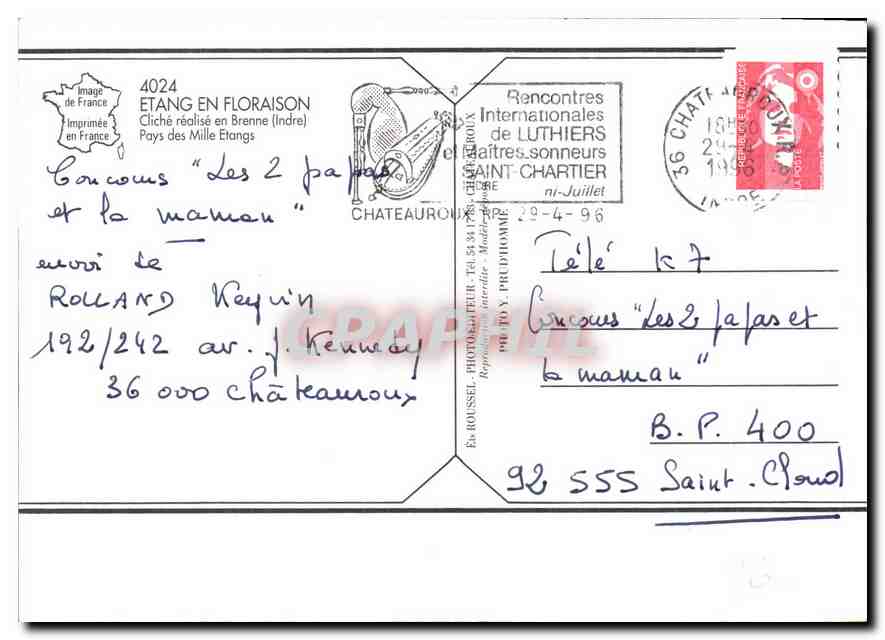 Image
de France
Imprimée
en France
4024
ETANG EN FLORAISON
Cliché réalisé en Brenne (Indre)
Pays des Mille Etangs
Concours "Les 2 papas
et la maman"
envoi de
ROLLAND Kevin
192/242 av. J. Kennedy
36 000 Châteauroux
Rencontres
Internationales
de LUTHIERS
et Maîtres sonneurs
SAINT-CHARTIER
INDRE
mi-Juillet
CHATEAUROUX RP 29-4-96
36 CHATEAUROUX R.P.
18H
29-4
1996
INDRE
REPUBLIQUE FRANÇAISE
LA POSTE
Ets ROUSSEL - PHOTO-EDITEUR - Tél. 54 34 CHATEAUROUX
Reproduction interdite - Modèle déposé
PHOTO Y. PRUD'HOMME
CPAPHIL
Télé K7
Concours "Les 2 papas et
la maman"
B.P. 400
92 555 Saint-Cloud